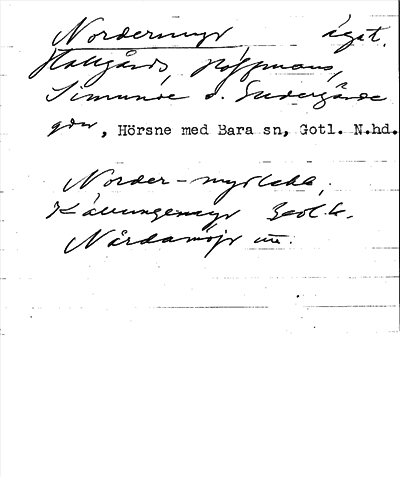 Nordermyr ägat.
Hallgårds, Hoffmans,
Simunde o. Sudergårda
gdr, Hörsne med Bara sn, Gotl. N.hd.
Norder-myr
Källungemyr Geol. k.
Nårdamöjr